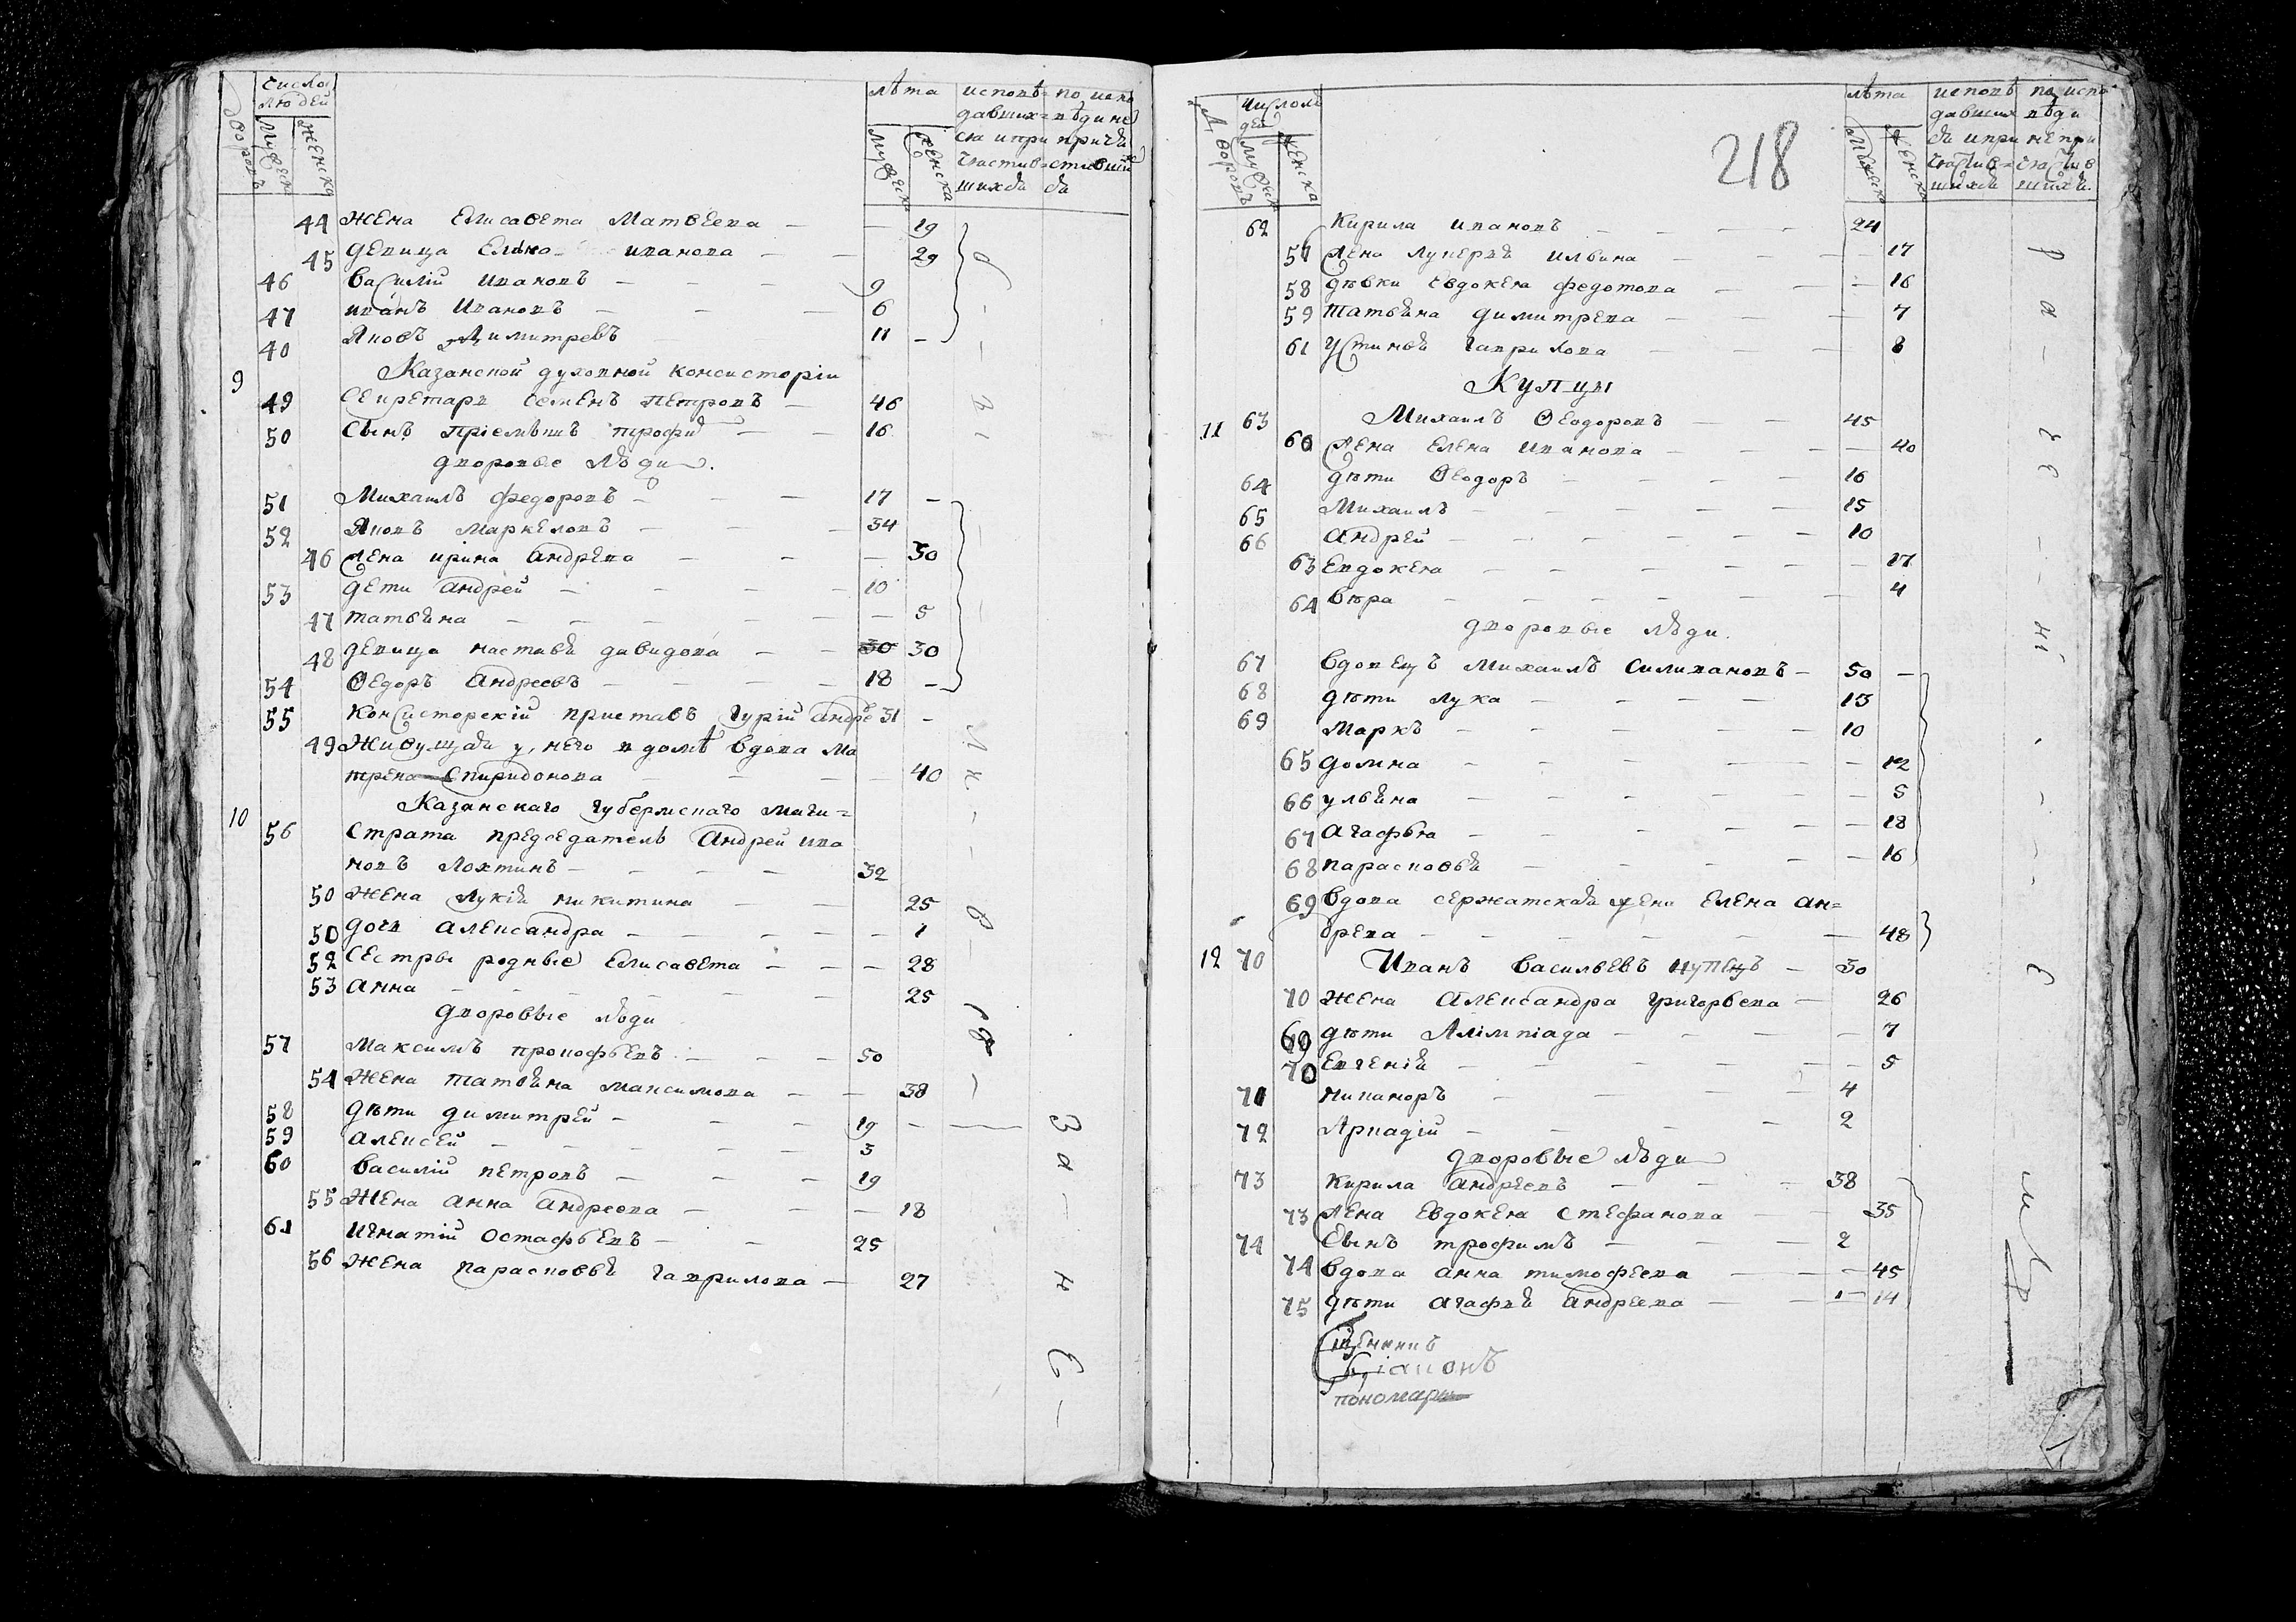 Число людей лѣта исповѣ= по испо
дворовъ мужеск женска мужеск женска давших= вѣди не
ся и при причѧ
частив= стивши
шихсѧ сѧ
44 жена Елисавета Матвеева — — 19
45 девица Елено- иванова — — 29
46 Василій Ивановъ — — — 9
47 иванъ Ивановъ — — — 6
40 Яковъ Димитревъ 11 —
9 Казанской духовной консисторіи
49 секретарь Семенъ Петровъ — 46
50 Сынъ пріемышъ трофи — — 16
дворовые люди.
51 Михаилъ федоровъ — — — 17 —
52 Яковъ Маркеловъ — — — 34
46 жена ирина андрева — — — 30
53 дети андрей — — — — 10
47 татьѧна — — — — — — 5
48 девица настасьѧ давидова — — 30 30
54 Ѳедоръ андреевъ — — — — 18 —
55 Консисторскій приставъ гурій андре 31 —
49 Живущаѧ у, него в домѣ вдова ма
трена Спиридонова — — — — 40
10 Казанскаго губернскаго маги=
56 страта председатель андрей ива
новъ Лохтинъ — — — — 32
50 жена лукіѧ никитина — — 25
50 дочь александра — — — — — 1
52 Сестры родные Елисавета — — — 28
53 анна — — — — — — 25
дворовые люди
57 Максимъ прокофьевъ — — — 50
54 Жена татьѧна максимова — — 38
58 дѣти димитрей — — — — 19 —
59 алексей — — — — — 3
60 василій петровъ — — — 19
55 Жена анна андреева — — — 18
61 игнатій Остафьевъ — — 25
56 Жена парасковьѧ гаврилова — 27
За — не —
218
Число лю дей лѣта исповѣ по испо
Дворовъ мужеск женска мужеска женска давших вѣди
сѧ и при не при
частив= частив
шихсѧ шихсѧ.
62 Кирила ивановъ — — — — 24
57 Жена лукерьѧ ильина — — — — 17
58 дѣвки Евдокеѧ федотова — — — 16
59 татьѧна димитрева — — — 7
61 Устиньѧ гаврилова — — — 8
Купцы
11 63 Михаилъ Ѳеодоровъ — — 45
60 Жена Елена иванова — — — — 40
64 дѣти Ѳеодоръ — — — — 16
65 Михаилъ — — — — — — 15
66 андрей — — — — — — 10
63 Евдокеѧ — — — — — — 17
64 вѣра — — — — — — 4
дворовые люди.
67 вдовецъ Михаилъ Силивановъ — 50 —
68 дѣти лука — — — — — 13
69 Маркъ — — — — — — 10
65 домна — — — — — — 12
66 ульѧна — — — — — — 5
67 агафьѧ — — — — — — 18
68 парасковьѧ — — — — — 16
69 вдова сержатскаѧ жена Елена ан=
древа — — — — — — — 48
12 70 Иванъ васильевъ купецъ — 30
70 жена александра григорьева — 26
69 дѣти Алімпіада — — — — 7
70 Евгеніѧ — — — — — — 5
71 никаноръ — — — — 4
72 Аркадій — — — — — 2
дворовые люди
73 кирила андреевъ — — — 38
73 Жена Евдокеѧ стефанова — — 35
74 Сынъ трофимъ — — — 2
74 вдова анна тимофеева — — — 45
75 дѣти агафьѧ андреева — — — 14
пономарь